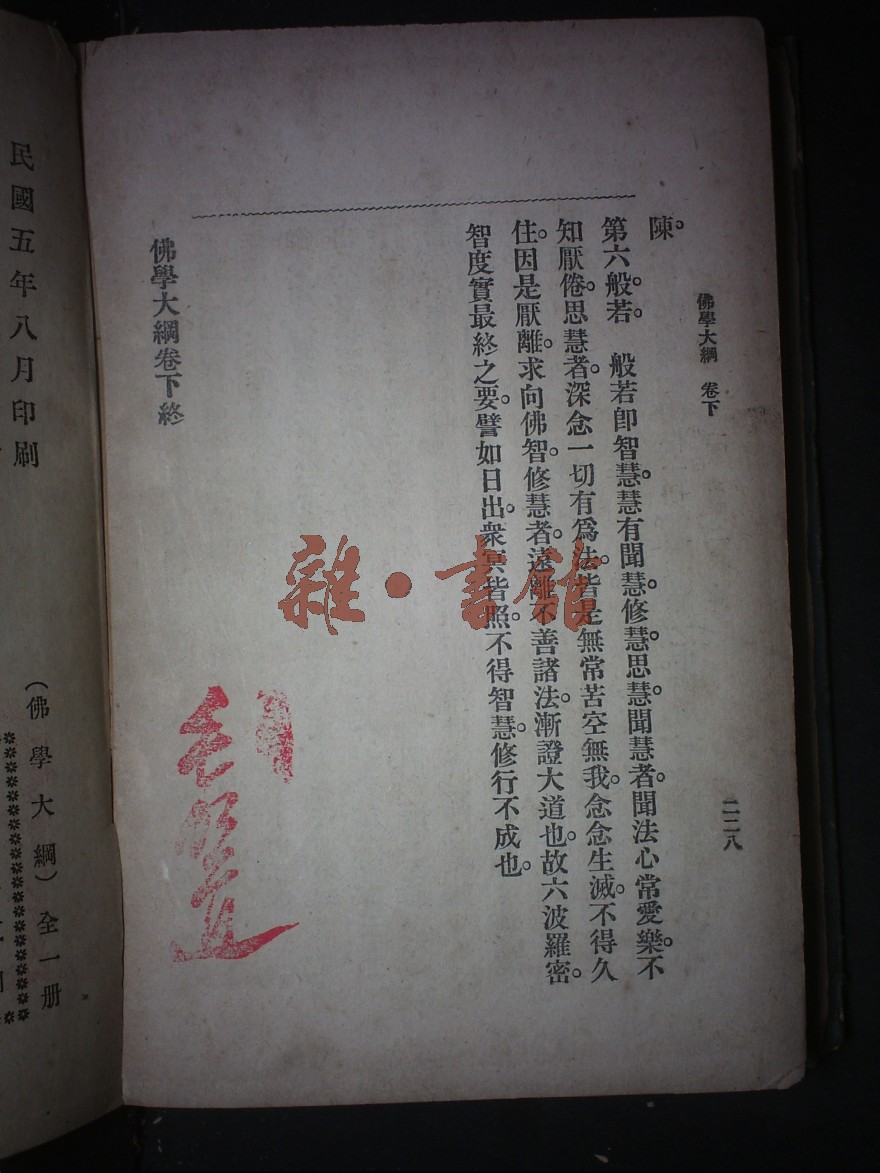 佛學大綱　卷下
二二八
陳。
第六般若。　般若卽智慧。慧有聞慧。修慧。思慧。聞慧者。聞法心常愛樂。不
知厭倦。思慧者。深念一切有爲法。皆是無常苦空無我。念念生滅。不得久
住。因是厭離。求向佛智。修慧者。遠離不善諸法。漸證大道也。故六波羅密。
智度實最終之要。譬如日出。衆冥皆照。不得智慧。修行不成也。
佛學大綱卷下終
雜・書館
民國五年八月印刷
（佛學大綱）全一册